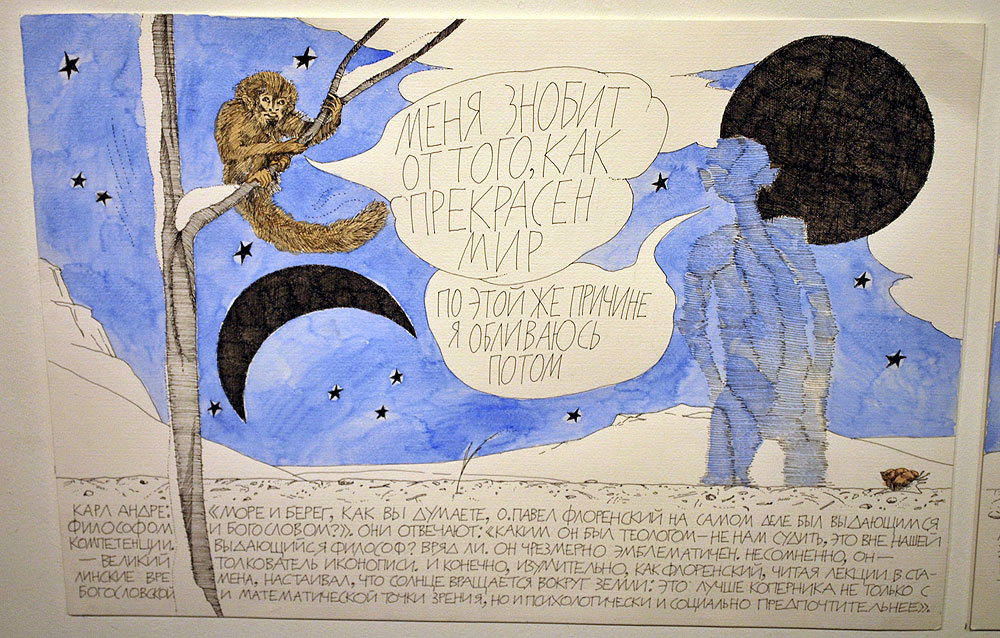 МЕНЯ ЗНОБИТ
ОТ ТОГО, КАК
ПРЕКРАСЕН
МИР
ПО ЭТОЙ ЖЕ ПРИЧИНЕ
Я ОБЛИВАЮСЬ
ПОТОМ
КАРЛ АНДРЕ: «МОРЕ И БЕРЕГ, КАК ВЫ ДУМАЕТЕ, О.ПАВЕЛ ФЛОРЕНСКИЙ НА САМОМ ДЕЛЕ БЫЛ ВЫДАЮЩИМСЯ
ФИЛОСОФОМ И БОГОСЛОВОМ?». ОНИ ОТВЕЧАЮТ: «КАКИМ ОН БЫЛ ТЕОЛОГОМ — НЕ НАМ СУДИТЬ, ЭТО ВНЕ НАШЕЙ
КОМПЕТЕНЦИИ. ВЫДАЮЩИЙСЯ ФИЛОСОФ? ВРЯД ЛИ. ОН ЧРЕЗМЕРНО ЭМБЛЕМАТИЧЕН. НЕСОМНЕННО, ОН —
— ВЕЛИКИЙ ТОЛКОВАТЕЛЬ ИКОНОПИСИ. И КОНЕЧНО, ИЗУМИТЕЛЬНО, КАК ФЛОРЕНСКИЙ, ЧИТАЯ ЛЕКЦИИ В СТА-
ЛИНСКИЕ ВРЕМЕНА, НАСТАИВАЛ, ЧТО СОЛНЦЕ ВРАЩАЕТСЯ ВОКРУГ ЗЕМЛИ: ЭТО ЛУЧШЕ КОПЕРНИКА НЕ ТОЛЬКО С
БОГОСЛОВСКОЙ И МАТЕМАТИЧЕСКОЙ ТОЧКИ ЗРЕНИЯ, НО И ПСИХОЛОГИЧЕСКИ И СОЦИАЛЬНО ПРЕДПОЧТИТЕЛЬНЕЕ».